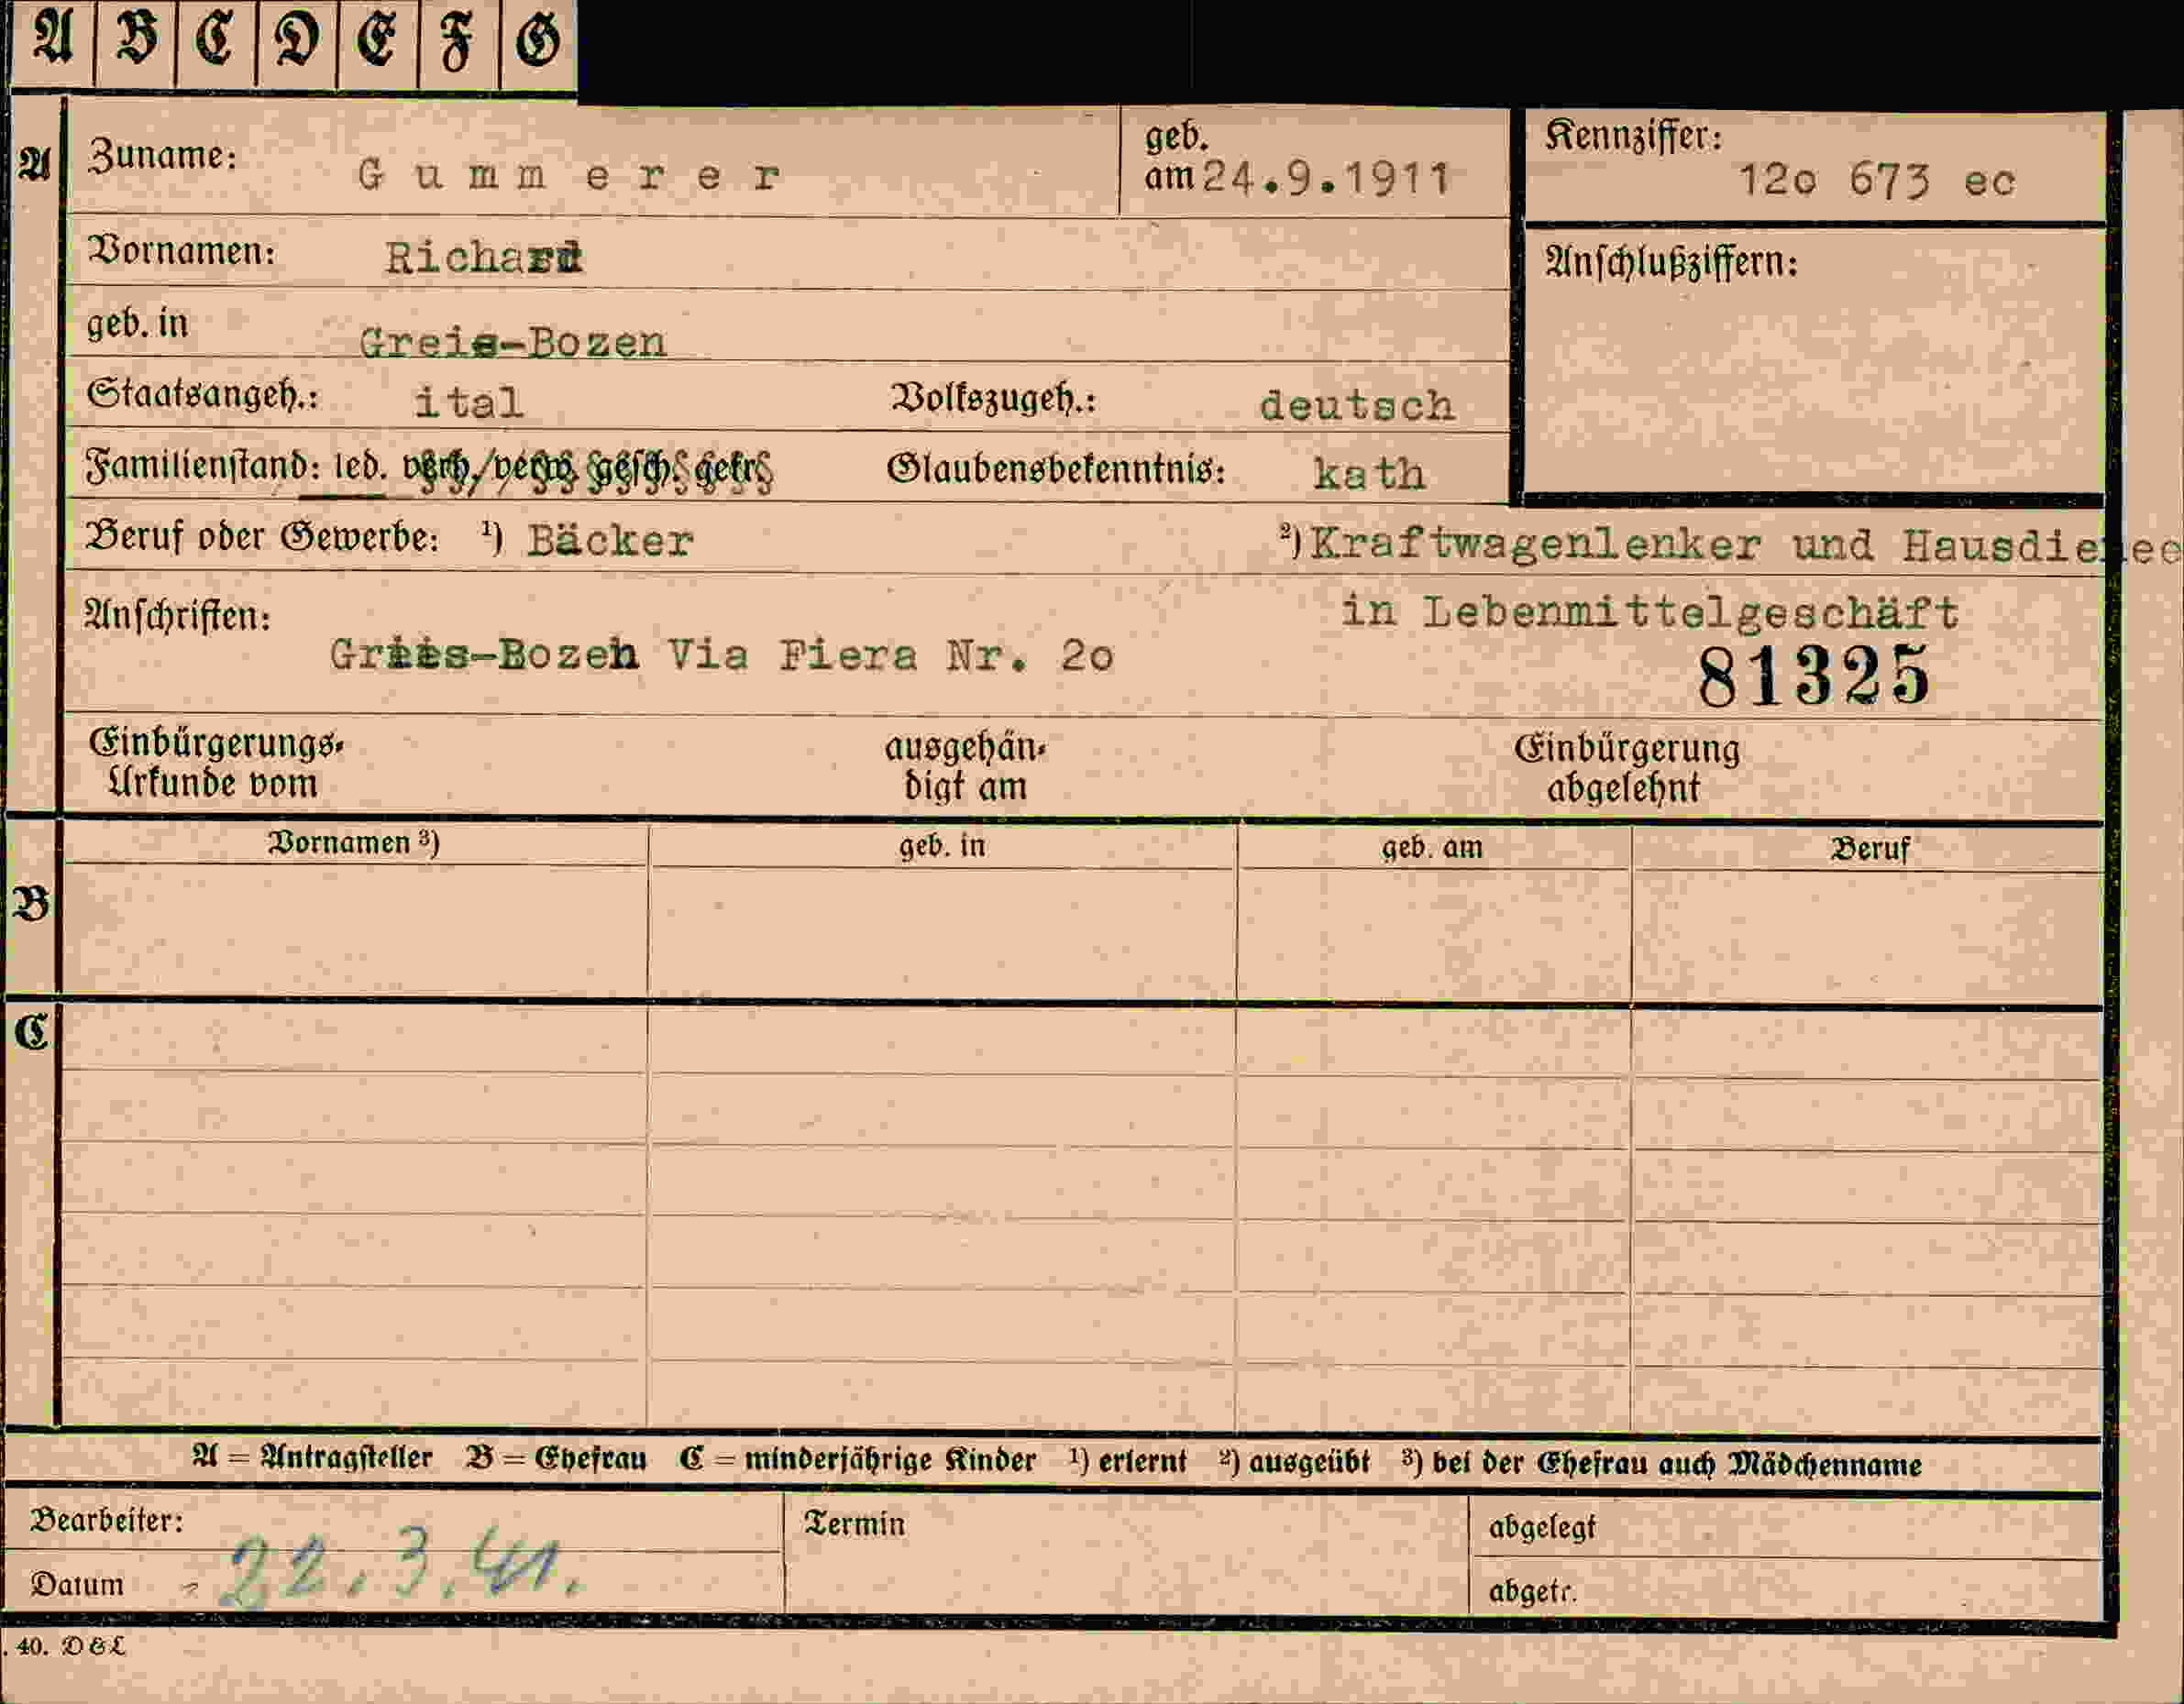 A B C D E F G
A Zuname: Gummerer geb. am 24.9.1911 Kennziffer: 12o 673 ec
Vornamen: Richard Anschlußziffern:
geb. in Greis-Bozen
Staatsangeh.: ital Volkszugeh.: deutsch
Familienstand: led. verh./verw. gesch. getr. Glaubensbekenntnis: kath
Beruf oder Gewerbe: ¹) Bäcker ²) Kraftwagenlenker und Hausdie
in Lebenmittelgeschäft
Anschriften:
Bozen Via Fiera Nr. 2o
81325
Einbürgerungs- Urkunde vom ausgehän- digt am Einbürgerung abgelehnt
B Vornamen ³) geb. in geb. am Beruf
C
A = Antragsteller B = Ehefrau C = minderjährige Kinder ¹) erlernt ²) ausgeübt ³) bei der Ehefrau auch Mädchenname
Bearbeiter: Termin abgelegt
Datum 22.3.41. abgetr.
. 40. D & L